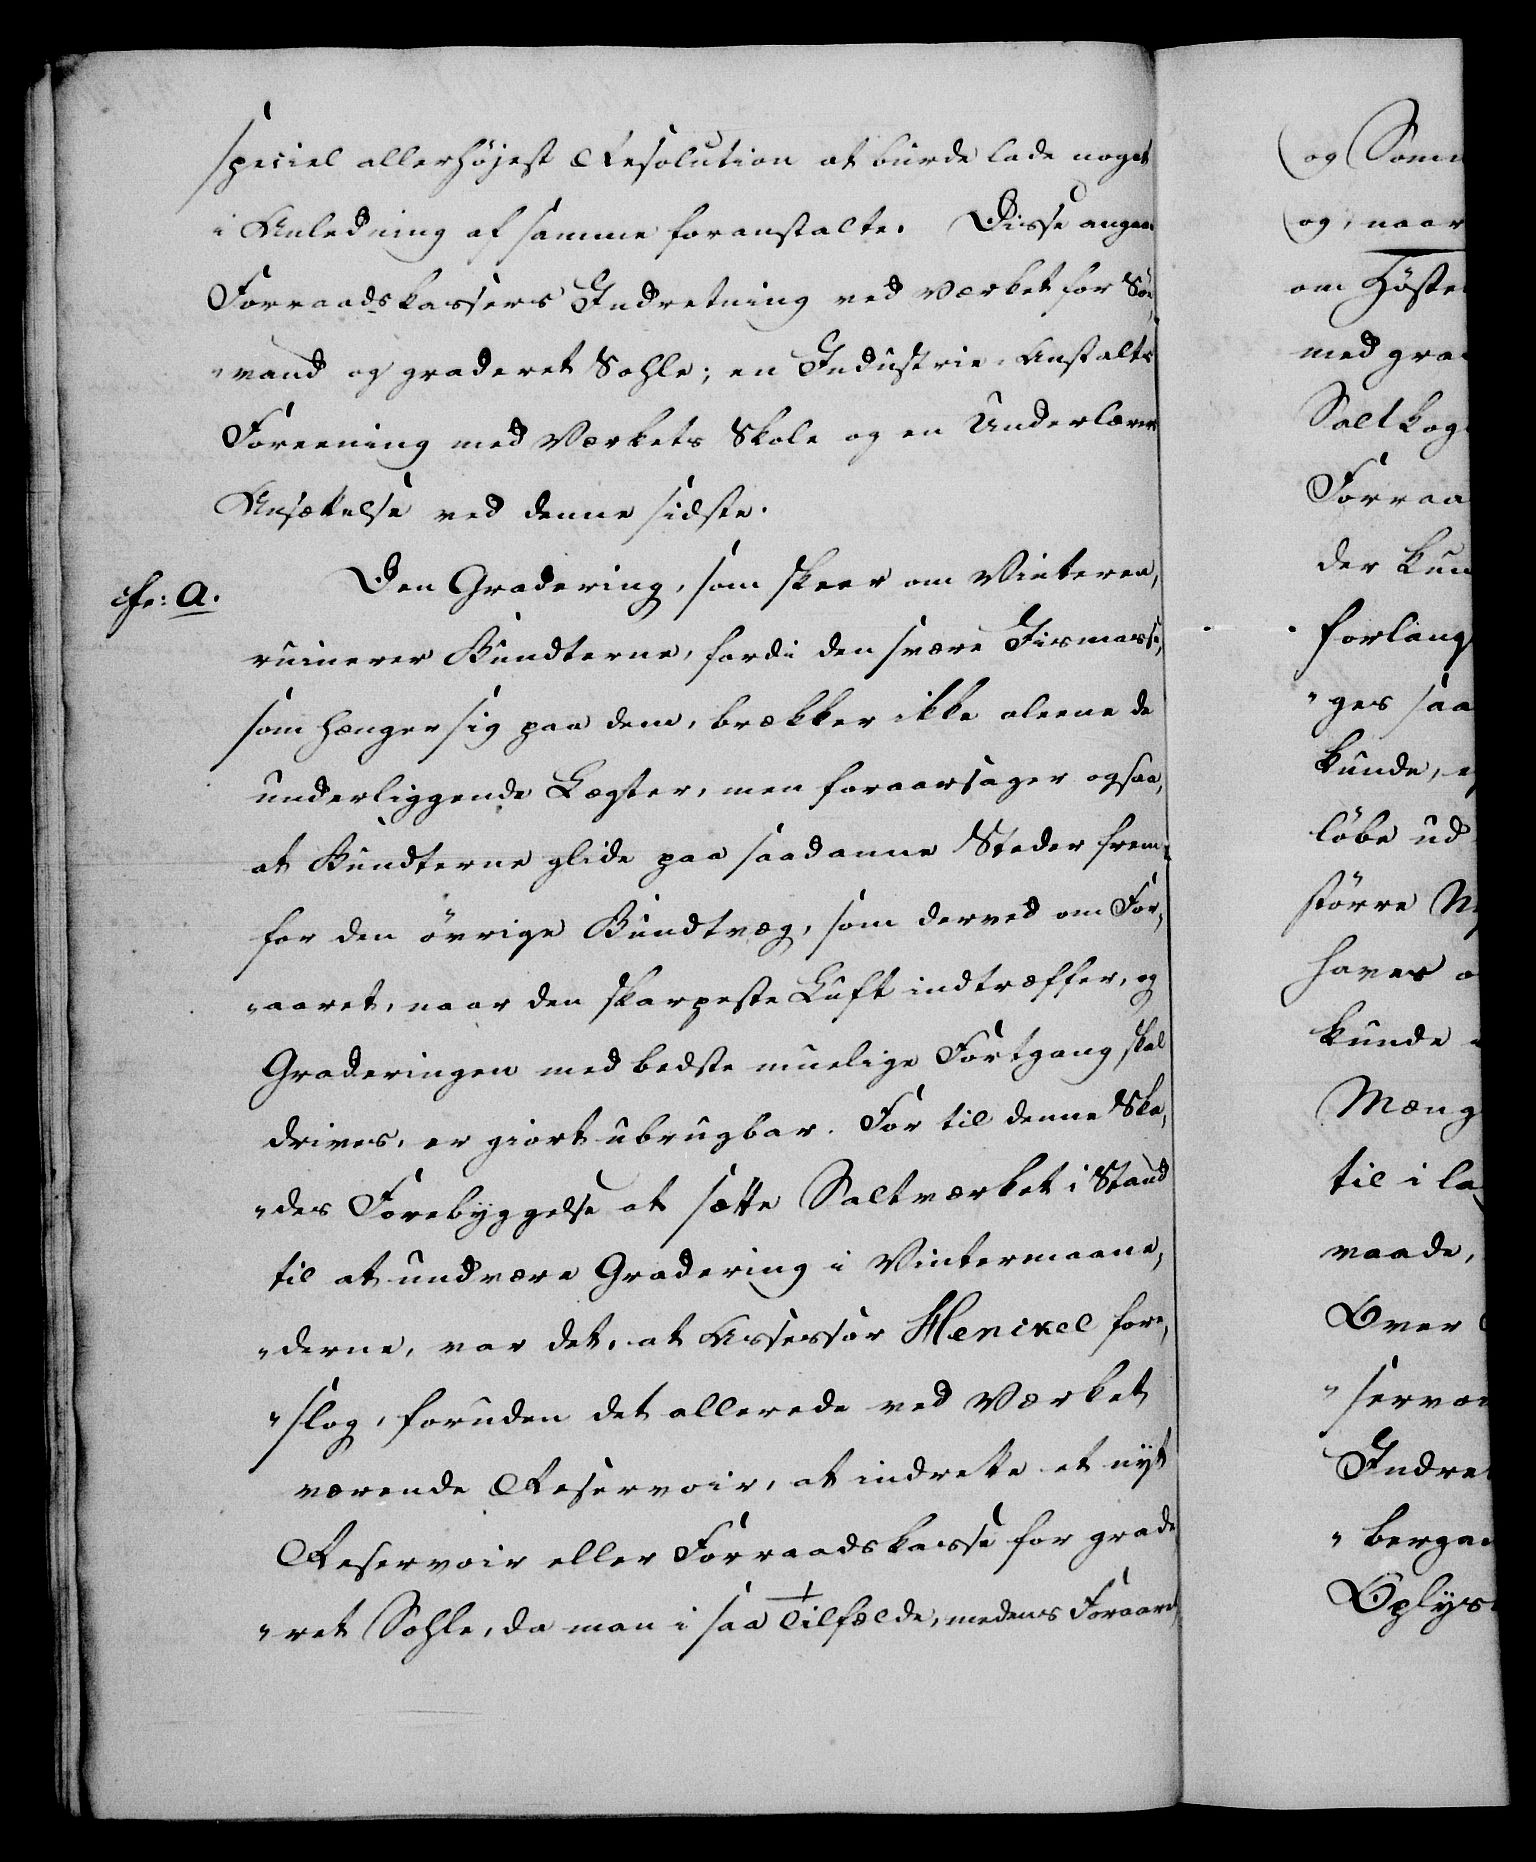 speciel allerhøjest Resolution at burde lade noget
i Anledning af samme foranstalte. Disse angaae
Forraadskassers Indretning ved Værket for Söe,
"vand og graderet Sohle; en Industrie Anstalts
Foreening med Værkets Skole og en Underlærers
Ansættelse ved denne sidste.
cfr: a.
Den Gradering, som skeer om Vinteren,
ruinerer Bundterne, fordi den svære Iismasse,
som hænger sig paa dem, brækker ikke aleene de
underliggende Lægter, men foraarsager ogsaa,
at Bundterne glide paa saadanne Steder frem
for den övrige Bundtvæg, som derved om For,
"aaret, naar den skarpeste Luft indtræffer, og
Graderingen med bedste muelige Fortgang skal
drives, er giort ubrugbar. For til denne Ska,
"des Forebyggelse at sætte Saltværket i Stand
til at undvære Gradering i Vintermaane,
"derne, var det, at Assessor Henckel fore,
"slog, foruden det allerede ved Værket
værende Reservoir, at indrette et nyt
Reservoir eller Forraadskasse for grade
"ret Sohle, da man i saa Tilfælde, medens Foraars
og Som
og, naar
om Høste
med gra
Saltkog
Forraa
der kun
forlang
"ges saa
kunde,
löbe ud
större
haves
kunde
Mæng
til i la
vaade,
Over
"servoi
Indre
"berga
Oplys